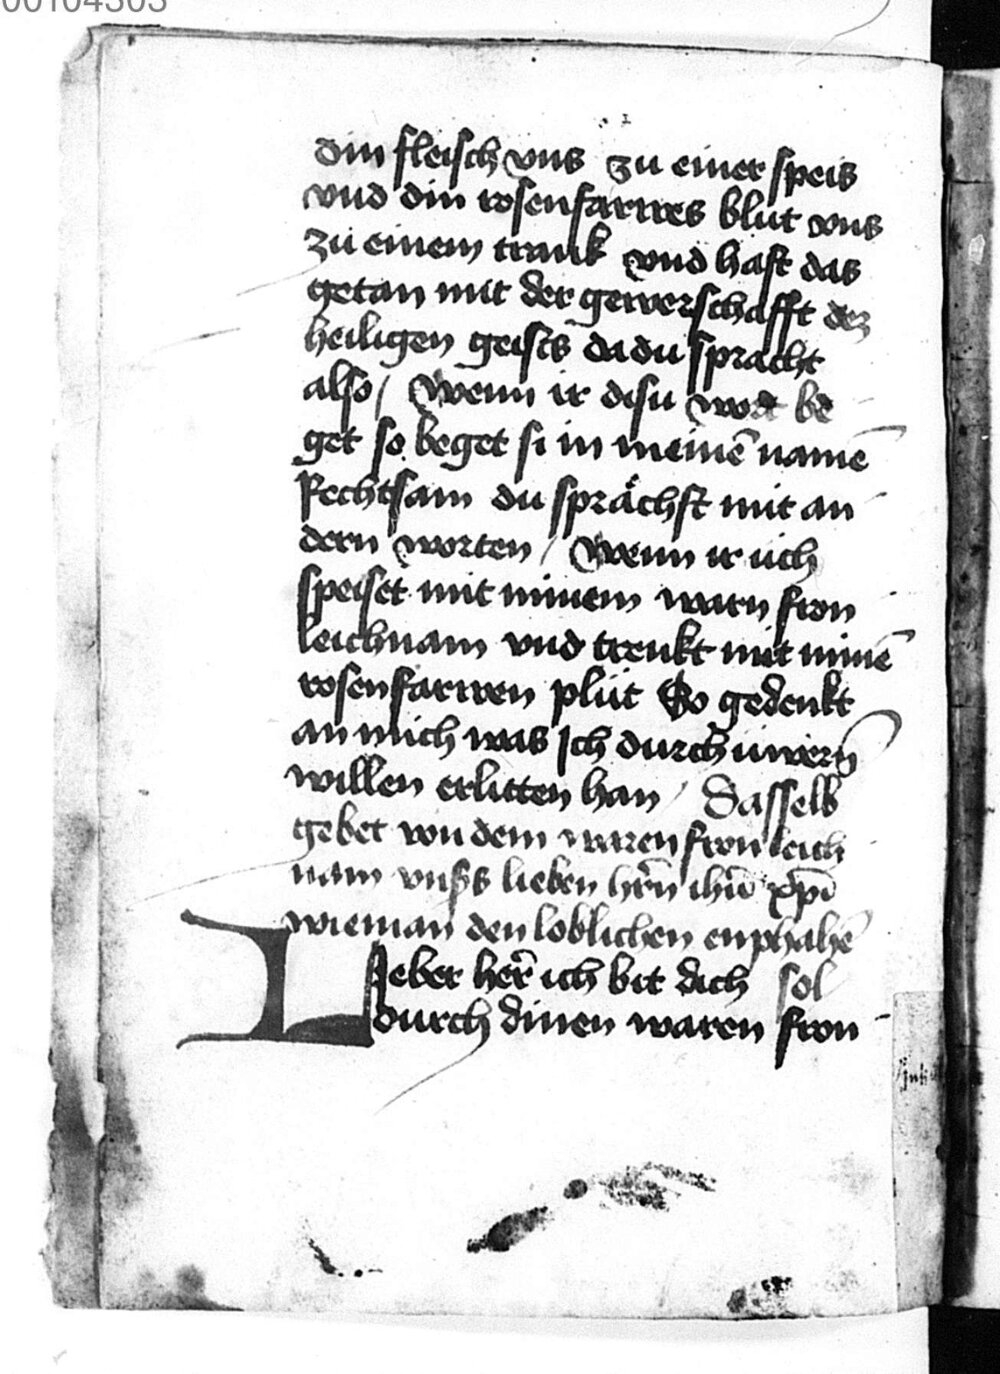 00104303
din fleisch vns zu einer speis
vnd din rosenfarwes blut vns
zu einem trank vnd hast das
getan mit der gewerschafft dez
heiligen geists da du spracht
also / Wenn ir disu wort be
get so beget si in meinē namē
Rechtsam du sprächst mit an
dern worten / Wenn ir üch
speiset mit minem warn fron
leichnam vnd trenkt mit minē
rosenfarwen plüt So gedenkt
an mich was Ich durch üwern
willen erlitten han / Dasselb
gebet von dem waren fronleich
nam vnsers lieben hr̄n ihū xp̄i
wie man den loblichen enphahē
Lieber her̄ ich bit dich sol
durch dinen waren fron